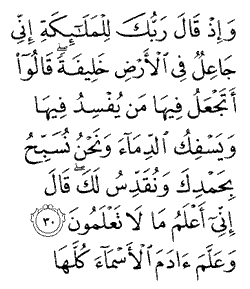 وَإِذْ قَالَ رَبُّكَ لِلْمَلَٰٓئِكَةِ إِنِّي
جَاعِلٌ فِي ٱلْأَرْضِ خَلِيفَةً ۖ قَالُوٓا۟
أَتَجْعَلُ فِيهَا مَن يُفْسِدُ فِيهَا
وَيَسْفِكُ ٱلدِّمَآءَ وَنَحْنُ نُسَبِّحُ
بِحَمْدِكَ وَنُقَدِّسُ لَكَ ۖ قَالَ
إِنِّيٓ أَعْلَمُ مَا لَا تَعْلَمُونَ ٣٠
وَعَلَّمَ ءَادَمَ ٱلْأَسْمَآءَ كُلَّهَا